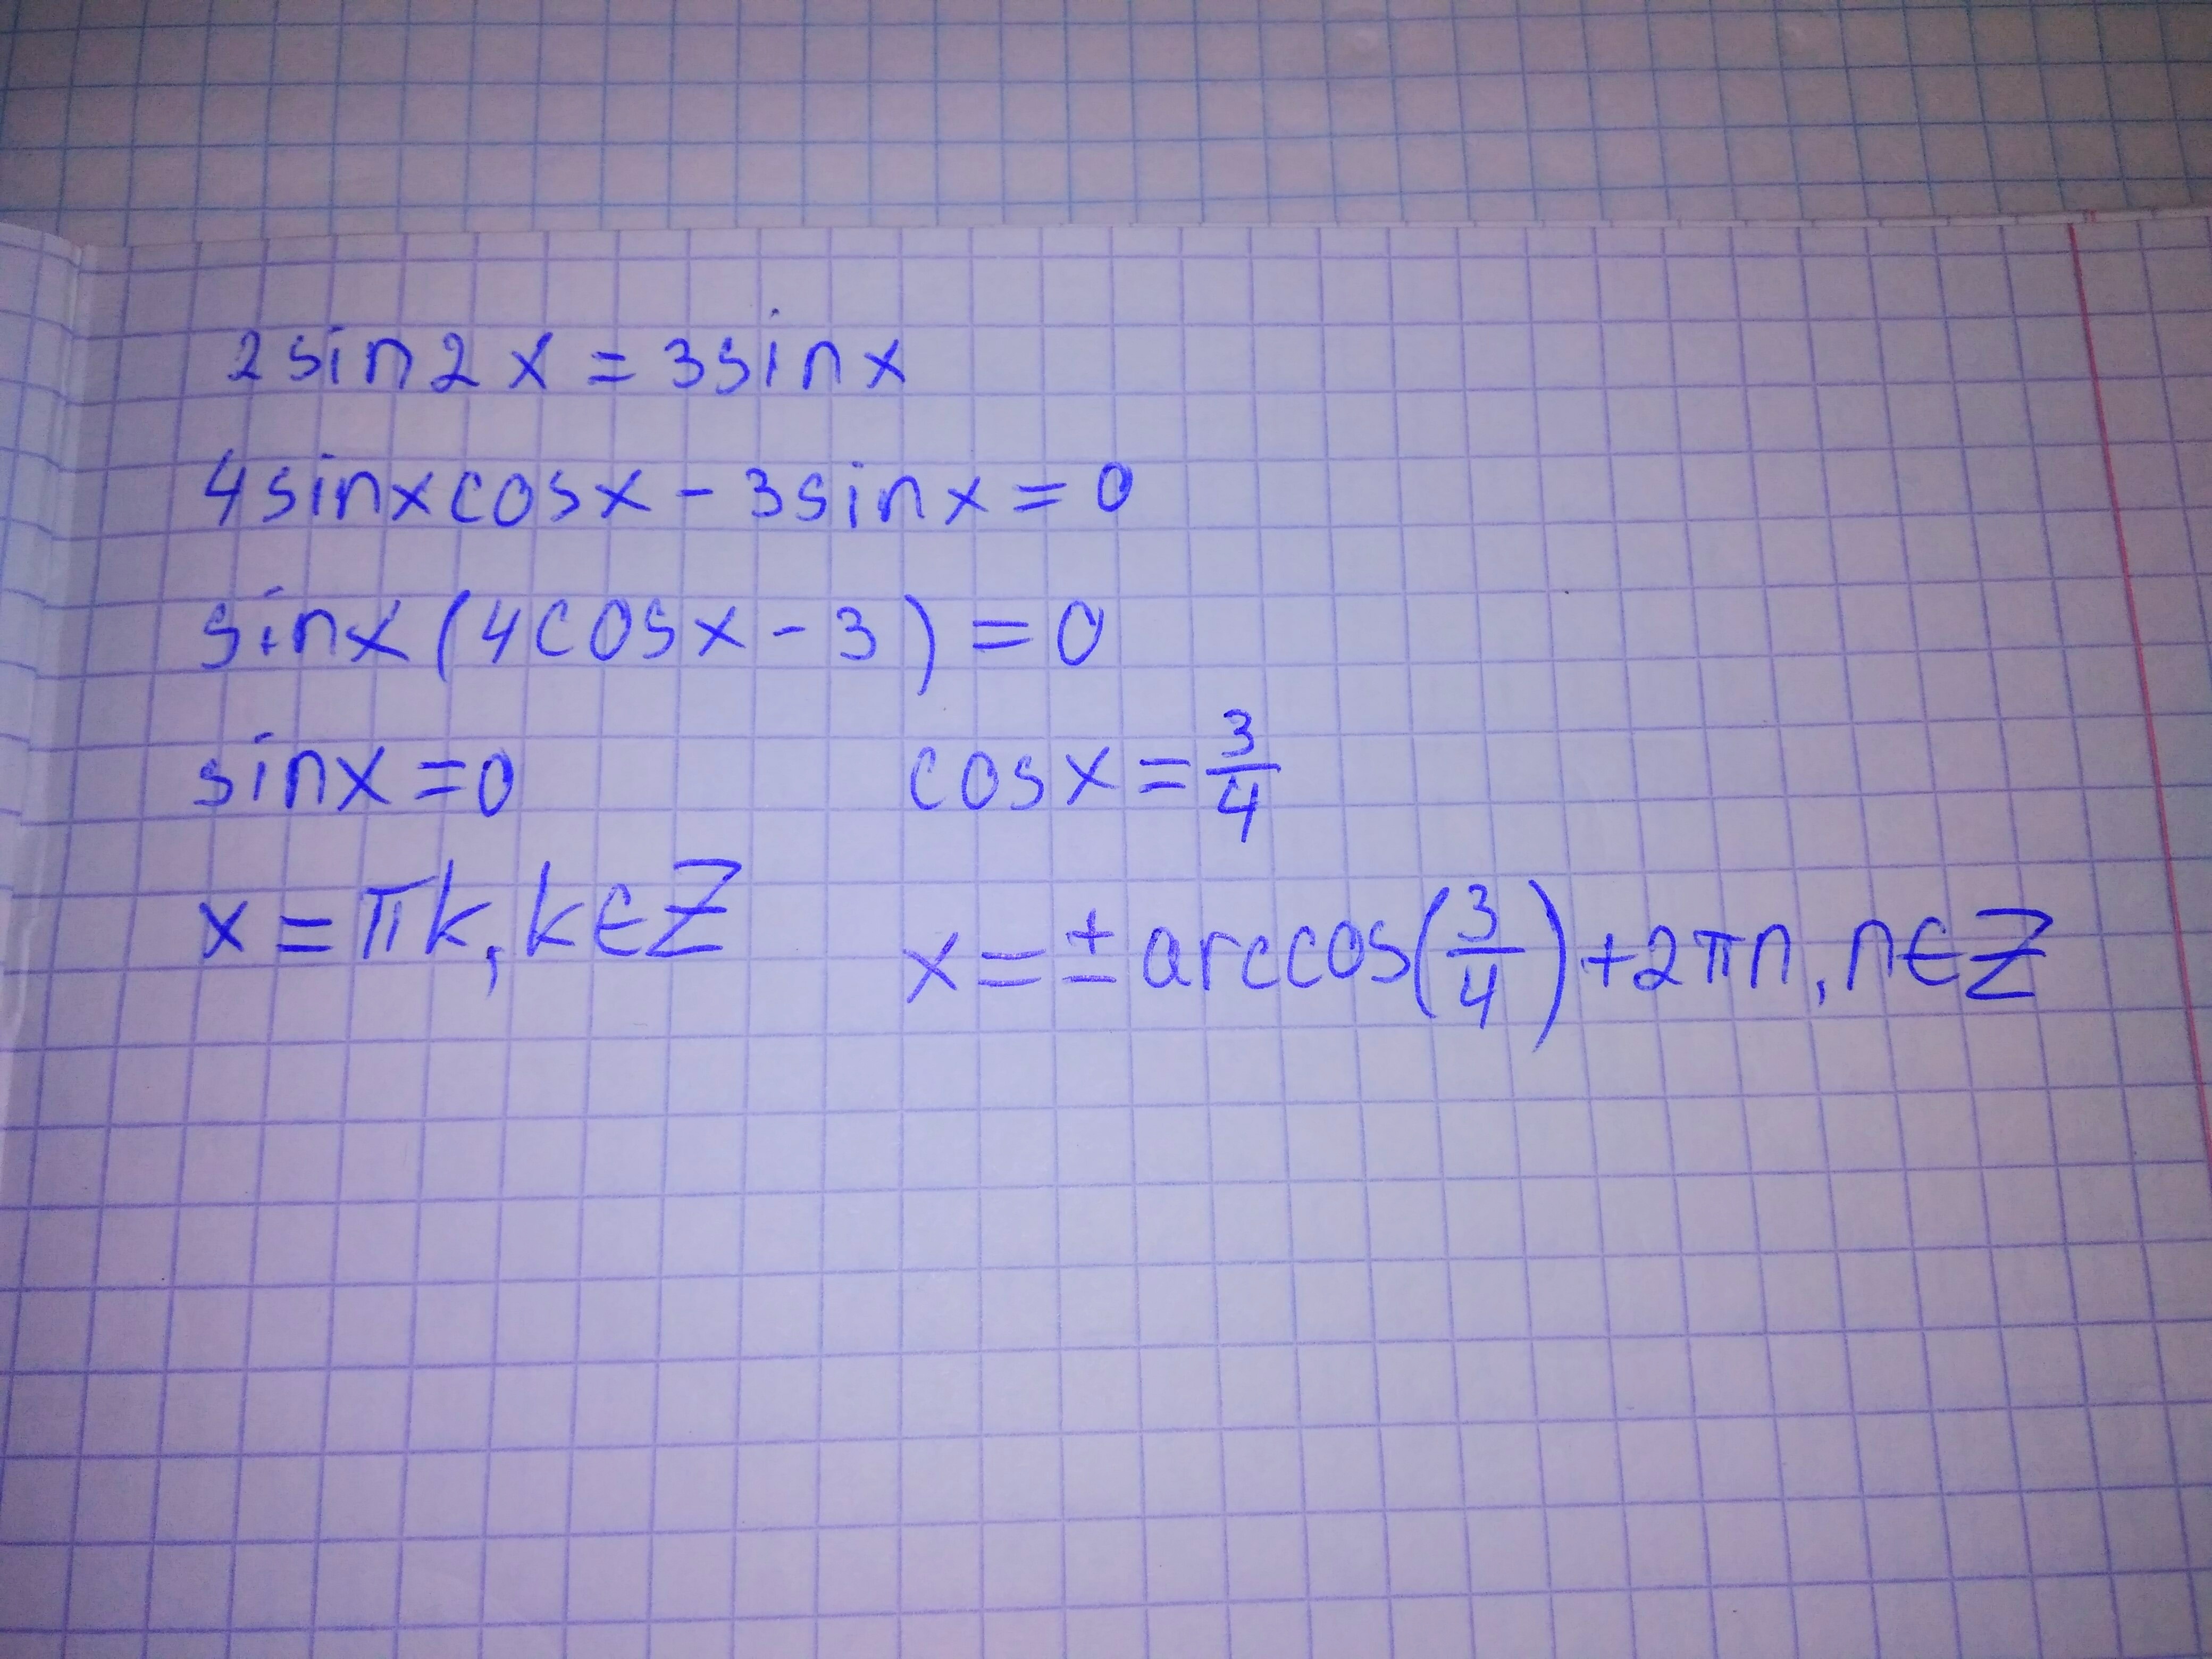 2sin2x = 3sinx
4sinxcosx - 3sinx = 0
sinx(4cosx - 3) = 0
sinx = 0 cosx = 3/4
x = πk, k∈Z x = ± arccos(3/4) + 2πn, n∈Z